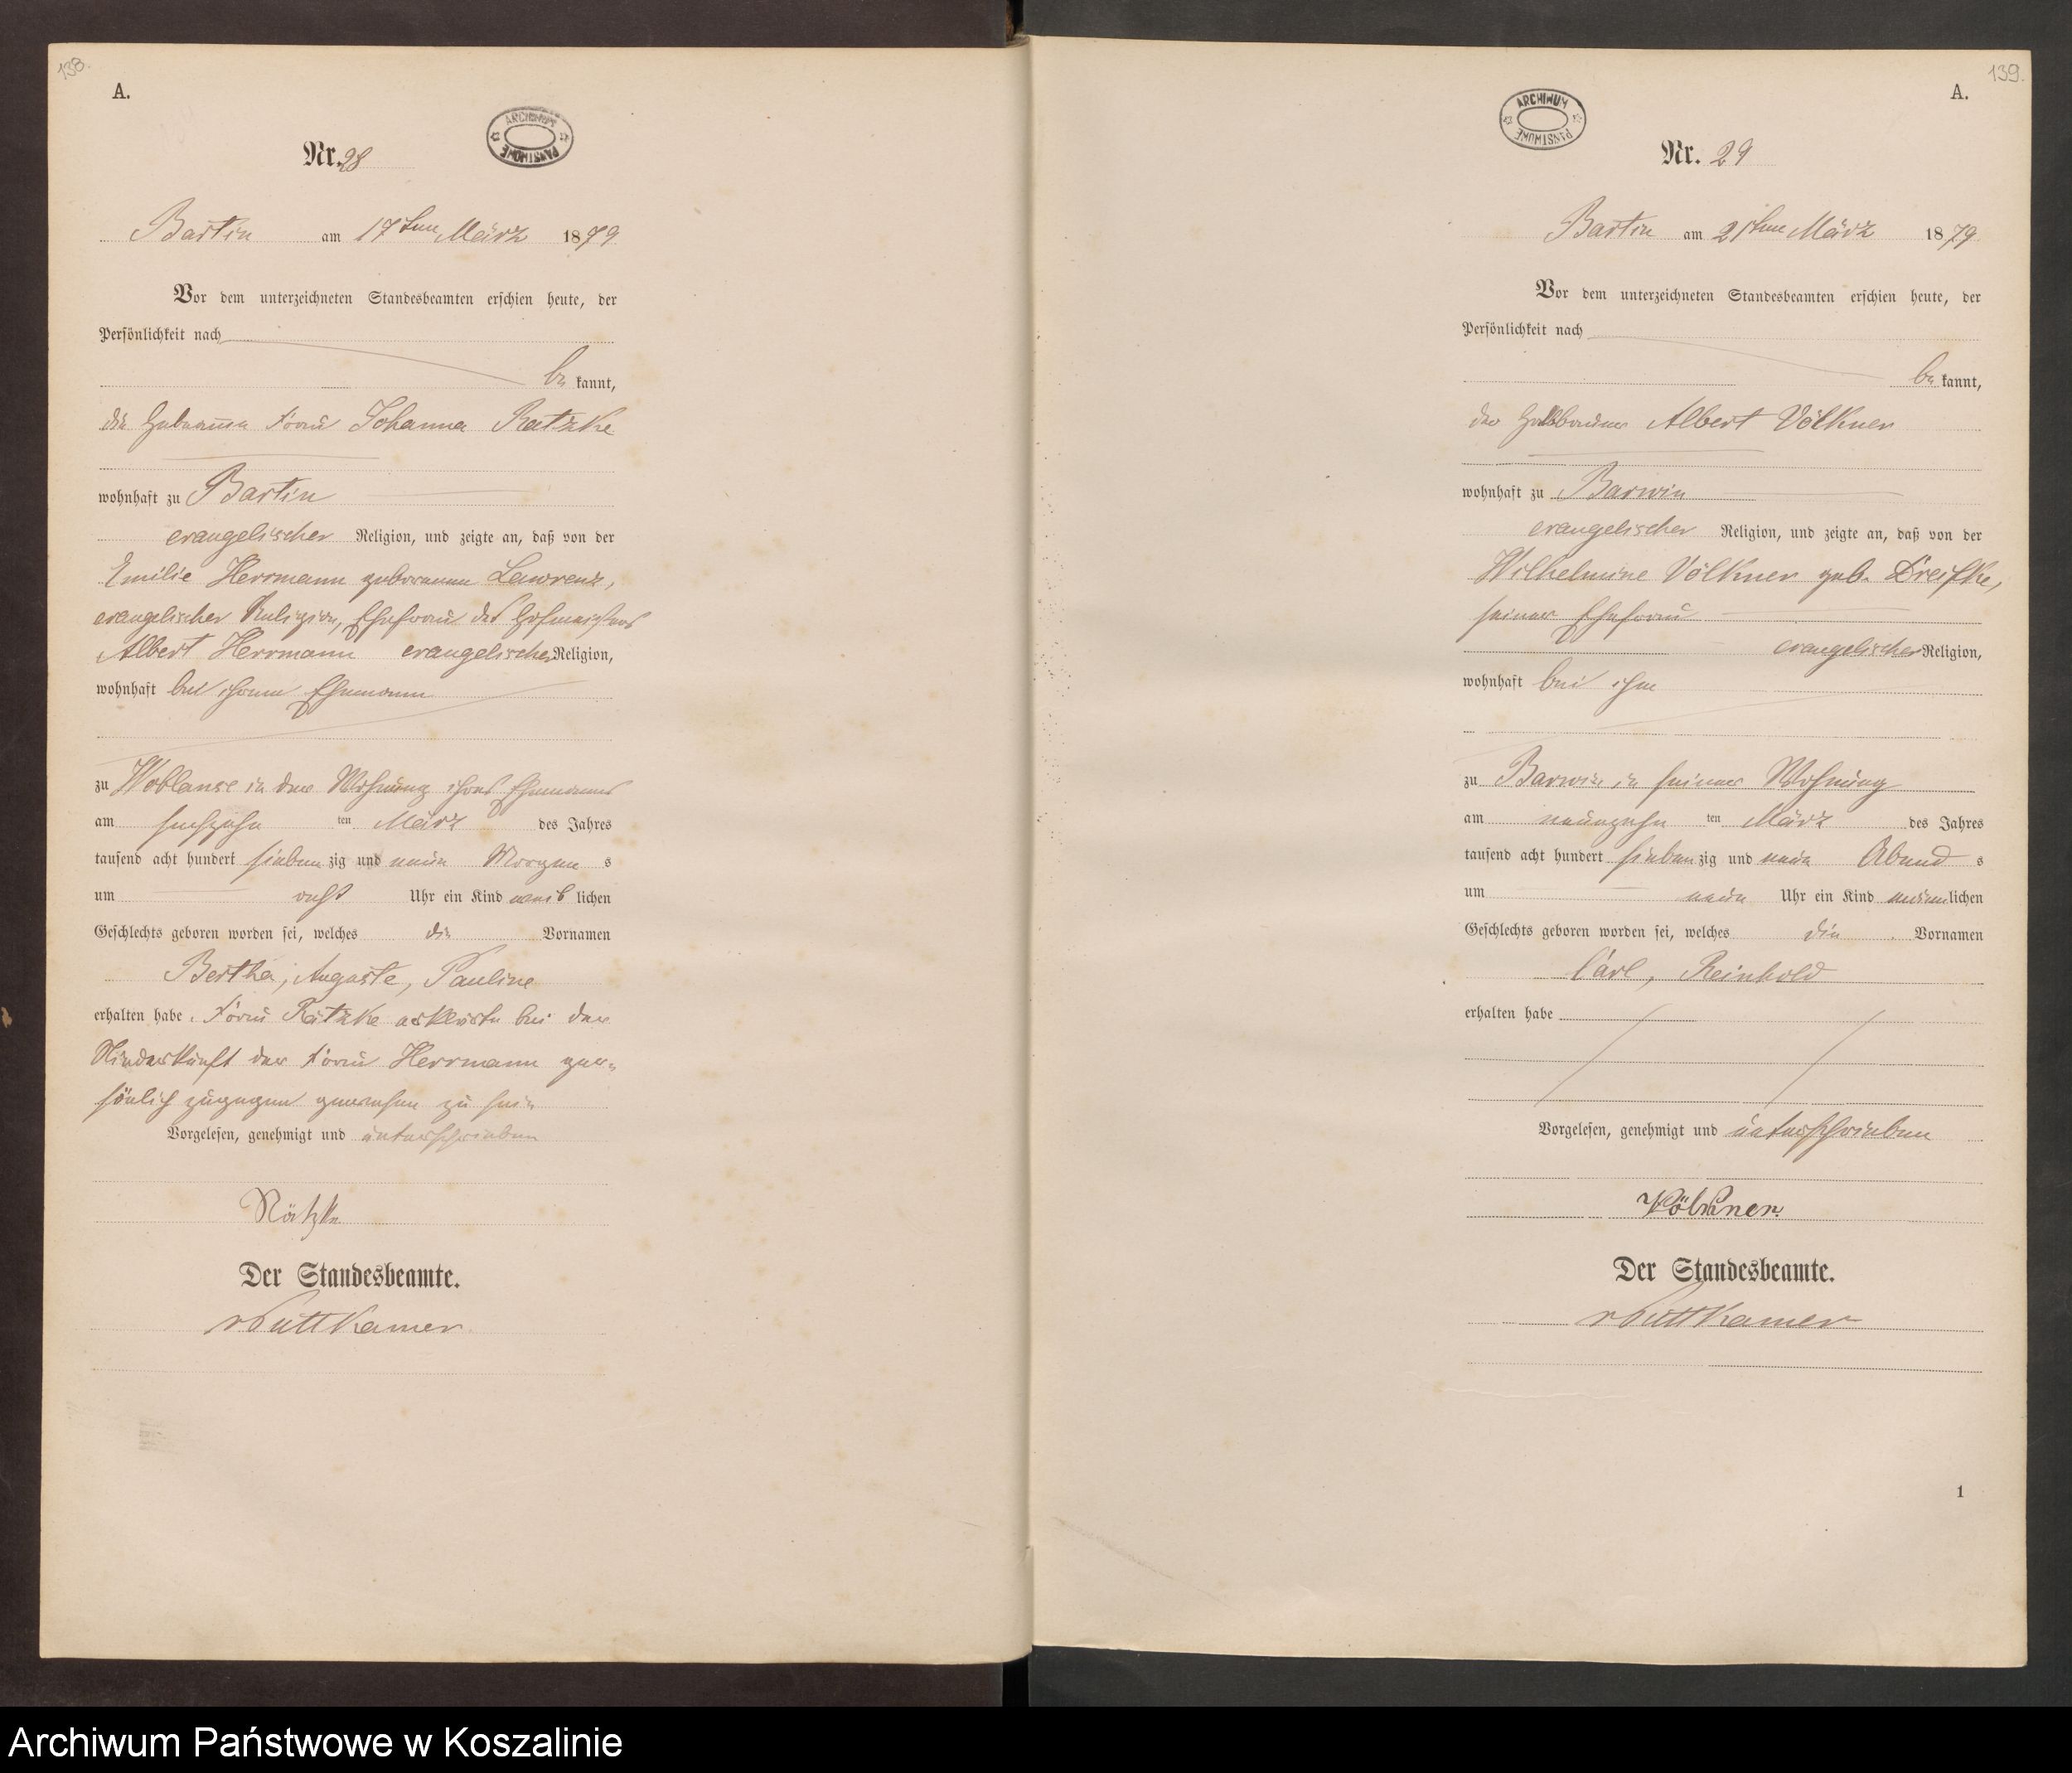 138.
A.
ARCHIWUM PAŃSTWOWE
Nr. 28
Bartin am 17ten März 1879
Vor dem unterzeichneten Standesbeamten erschien heute, der
Persönlichkeit nach
bekannt,
die Hebamme Frau Johanna Ratzke
wohnhaft zu Bartin
evangelischer Religion, und zeigte an, daß von der
Emilie Herrmann geborenen Lawrenz,
evangelischer Religion, Ehefrau des Hofmeisters
Albert Herrmann evangelischer Religion,
wohnhaft bei ihrem Ehemann
zu Woblanse in der Wohnung ihres Ehemannes
am sechszehn ten März des Jahres
tausend acht hundert siebenzig und neun Morgens
um acht Uhr ein Kind weiblichen
Geschlechts geboren worden sei, welches die Vornamen
Bertha, Auguste, Pauline
erhalten habe. Frau Rätzke erklärte bei der
Niederkunft der Frau Herrmann per-
sönlich zugegen gewesen zu sein
Vorgelesen, genehmigt und unterschrieben
Rätzke
Der Standesbeamte.
vPuttkamer
139.
A.
ARCHIWUM PAŃSTWOWE
Nr. 29
Bartin am 21ten März 1879
Vor dem unterzeichneten Standesbeamten erschien heute, der
Persönlichkeit nach
bekannt,
der Halbbauer Albert Völkner
wohnhaft zu Barwin
evangelischer Religion, und zeigte an, daß von der
Wilhelmine Völkner geb. Dreifke,
seiner Ehefrau
evangelischer Religion,
wohnhaft bei ihm
zu Barwin in seiner Wohnung
am neunzehn ten März des Jahres
tausend acht hundert siebenzig und neun Abends
um neun Uhr ein Kind männlichen
Geschlechts geboren worden sei, welches die Vornamen
Carl, Reinhold
erhalten habe
Vorgelesen, genehmigt und unterschrieben
Völkner.
Der Standesbeamte.
vPuttkamer
1
Archiwum Państwowe w Koszalinie